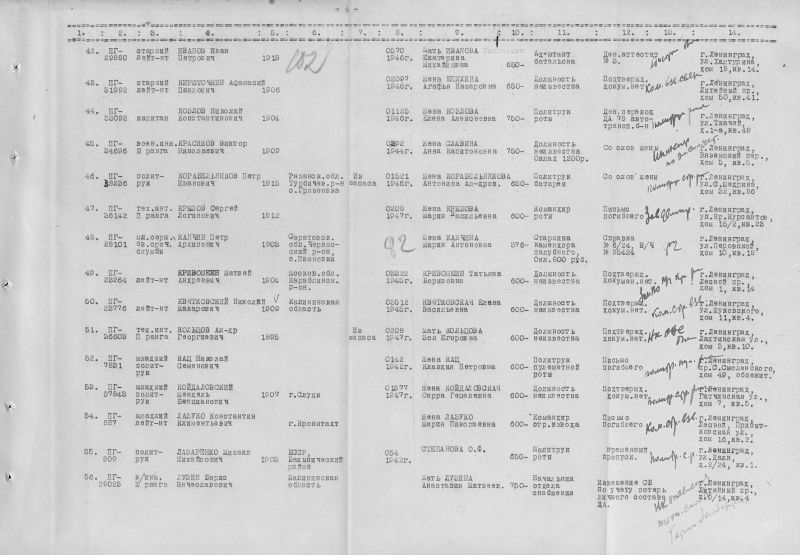 - 4 -
1. 2. 3. 4. 5. 6. 7. 8. 9. 10. 11. 12. 13. 14.
42. ПГ- старший ИВАНОВ Иван 0570 Мать ИВАНОВА Екатерина Адъютант Ден.аттестат г.Ленинград,
29880 лейт-нт Петрович 1918 1946г. Екатерина батальона № 3. ул.Халтурина,
Михайловна 650- дом 18, кв.14.
102
43. ПГ- старший КИРОТОЧКИН Афанасий 02097 Жена ЕПИХИНА Должность Подтверд. г.Ленинград,
31992 лейт-нт Павлович 1906 1946г. Агафья Назаровна 650- неизвестна докум.нет. Литейный пр.,
дом 50,кв.41.
44. ПГ- КОЗЛОВ Николай 01125 Жена КОЗЛОВА Политрук Ден.перевод г.Ленинград,
33092 капитан Константинович 1904 1946г. Елена Алексеевна 750- роты ДА 78 авто- ул.Ткачей,
трансп.б-н
45. ПГ- воен.инж.КРАСИКОВ Виктор 0292 Жена СЛАВИНА Должность Со слов жены г.Ленинград,
34696 П ранга Николаевич 1909 1944г. Анна Капитоновна 750- неизвестна Вяземский пер.,
Оклад 1200р. дом 5, кв.5.
46. ПГ- полит- КОРАБЕЛЬНИКОВ Петр Рязанск.обл. Из 01521 Жена КОРАБЕЛЬНИКОВА Политрук Со слов жены г.Ленинград,
38236 рук Иванович 1915 запаса 1946г. Антонина Ал-дров. 650- батареи ул.С.Щедрина,
с.Грязновка дом 32,кв.86
47. ПГ- тех.инт. КРЫЛОВ Сергей 0208 Жена КРЫЛОВА Командир Письмо г.Ленинград,
36142 П ранга Логинович 1912 1947г. Мария Васильевна 600- роты погибшего ул.Кр.Курсантов,
дом 15/2,кв.23
48. ПГ- мл.серж. КАНЧИН Петр Саратовск. Жена КАНЧИНА Старшина Справка г.Ленинград,
28101 св.сроч. Архипович 1903 Мария Антоновна 375- № 6/24, В/Ч ул.Перовской,
службы р-он, № 95424 дом 10,кв.18
с.Ивановка Окл.800 руб.
92
49. ПГ- КРИВОШЕЕВ Матвей Москов.обл. 03322 КРИВОШЕИН Татьяна Должность Подтверд. г.Ленинград,
23264 лейт-нт Андреевич 1904 1945г. Борисовна 600- неизвестна докумен.нет. Лесной пр.,
р-он. дом 1, кв.14
50. ПГ- КВЯТКОВСКИЙ Николай Калининская 03512 КВЯТКОВСКАЯ Елена Должность Подтверд. г.Ленинград,
23776 лейт-нт Макарович 1909 область 1945г. Васильевна 600- неизвестна докум.нет. ул.Жуковского,
дом 11,кв.4.
51. ПГ- тех.инт. КОЛЬЦОВ Ал-др Из 0208 Мать КОЛЬЦОВА Должность Подтверд. г.Ленинград,
36603 П ранга Георгиевич 1895 запаса 1947г. Зоя Егоровна 600- неизвестна докум.нет. Лахтинская ул.,
дом 3,кв.10.
52. ПГ- младший НАЦ Николай 0142 Жена НАЦ Политрук Письмо г.Ленинград,
7831 полит- Семенович 1942г. Клавдия Петровна 600- пулеметной погибшего пр.С.Смоленского,
рук роты дом 49, общежит.
53. ПГ- младший КОЙДАЛОВСКИЙ 01377 Жена КОЙДАЛОВСКАЯ Должность Подтверд. г.Ленинград,
37843 полит- Мендель 1907 г.Слуцк 1947г. Сарра Гецелевна 600- неизвестна докум.нет. Гатчинская ул.,
рук Бенцианович дом 7, кв.5.
54. ПГ- младший ЛАЗУКО Константин Жена ЛАЗУКО Командир Письмо г.Ленинград,
887 лейт-нт Климентьевич г.Кронштадт Мария Николаевна 600- отр.взвода Погибшего Лесной, Прибыт-
ковская ул.
дом 16,кв.2.
55. ПГ- полит- ЛАЗАРЕНКО Михаил БССР, 054 СТЕПАНОВА О.Ф. Политрук Временный г.Ленинград,
809 рук Михайлович 1903 1942г. 650- роты пропуск. ул.Даля,
район д.2/24, кв.1.
56. ПГ- в/инж. ЛУЗИН Борис Калининская Мать ЛУЗИНА Начальник Извещение СБ г.Ленинград,
29023 Ш ранга Вячеславович область Анастасия Матвеев. 750- отдела по учету потерь Литейный пр.,
снабжения личного состава д.9/14,кв.4
ДА.